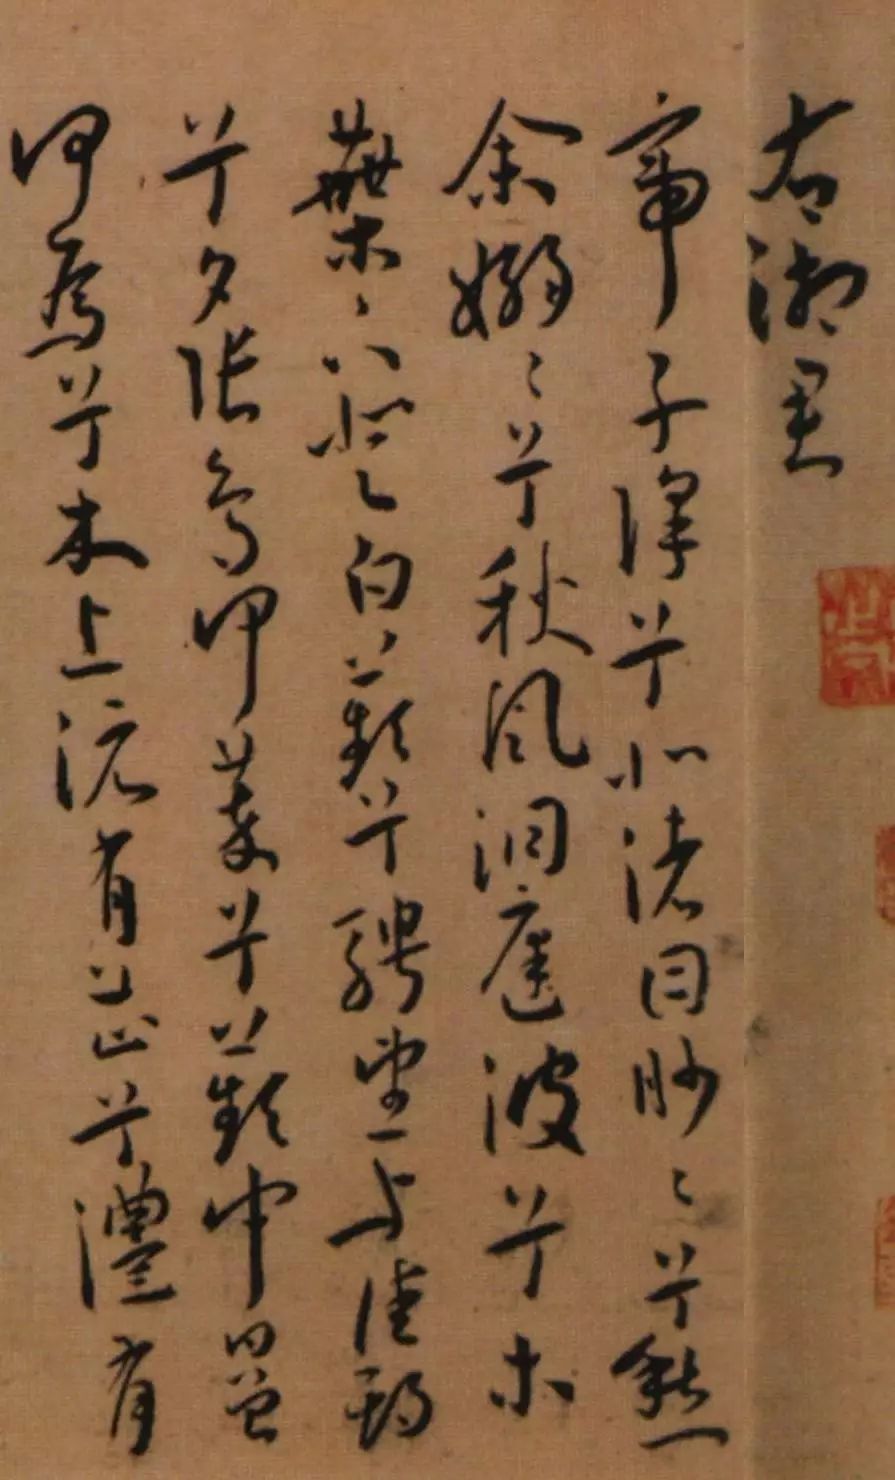 右湘君
帝子降兮北渚目眇〻兮愁
余嫋〻兮秋風洞庭波兮木
葉下登白薠兮騁望與佳期
兮夕張鳥何萃兮蘋中罾
何為兮木上沅有芷兮澧有